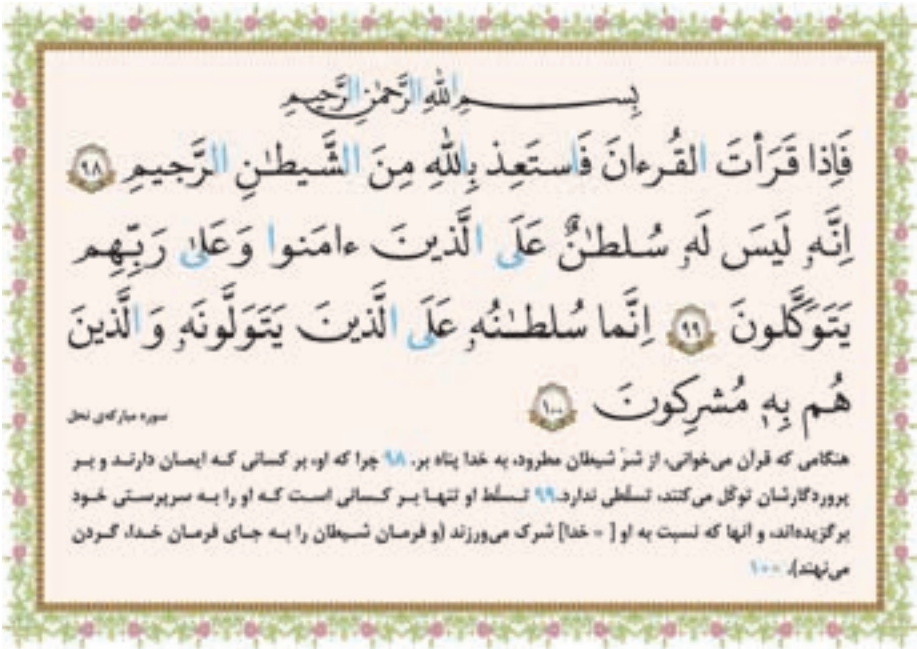 بِسمِ اللهِ الرَّحمٰنِ الرَّحیمِ
فَاِذا قَرَأتَ القُرءانَ فَاستَعِذ بِاللهِ مِنَ الشَّیطٰنِ الرَّجیمِ ﴿۹۸﴾
اِنَّهٗ لَیسَ لَهٗ سُلطٰنٌ عَلَی الَّذینَ ءامَنوا وَعَلىٰ رَبِّهِم
یَتَوَکَّلونَ ﴿۹۹﴾ اِنَّما سُلطٰنُهٗ عَلَی الَّذینَ یَتَوَلَّونَهٗ وَالَّذینَ
هُم بِهٖ مُشرِکونَ ﴿۱۰۰﴾
سوره مبارکه‌ی نحل
هنگامی که قرآن می‌خوانی، از شرّ شیطان مطرود، به خدا پناه بر. ۹۸ چرا که او، بر کسانی که ایمان دارند و بر
پروردگارشان توکّل می‌کنند، تسلّطی ندارد.۹۹ تسلّط او تنها بر کسانی است که او را به سرپرستی خود
برگزیده‌اند، و آنها که نسبت به او [ = خدا] شرک می‌ورزند (و فرمان شیطان را به جای فرمان خدا، گردن
می‌نهند). ۱۰۰